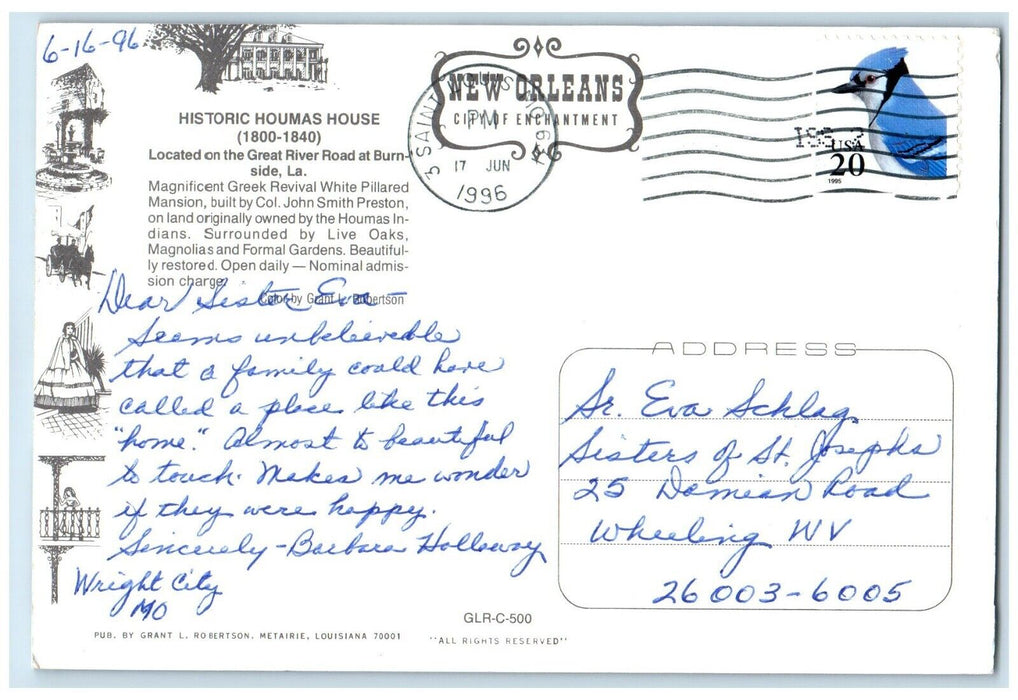 6-16-96
HISTORIC HOUMAS HOUSE
(1800-1840)
Located on the Great River Road at Burn-
side, La.
Magnificent Greek Revival White Pillared
Mansion, built by Col. John Smith Preston,
on land originally owned by the Houmas In-
dians. Surrounded by Live Oaks,
Magnolias and Formal Gardens. Beautiful-
ly restored. Open daily — Nominal admis-
sion charge.
Color by Grant L. Robertson
Dear Sister Eva—
Seems unbelievable
that a family could have
called a place like this
"home." Almost to beautiful
to touch. Makes me wonder
if they were happy.
Sincerely - Barbara Holloway
Wright City
MO
PUB. BY GRANT L. ROBERTSON, METAIRIE, LOUISIANA 70001
GLR-C-500
"ALL RIGHTS RESERVED"
NEW ORLEANS
CITY OF ENCHANTMENT
SAINT LOUIS MO 631
PM
17 JUN
1996
USA
20
1995
ADDRESS
Sr. Eva Schlag
Sisters of St. Josephs
25 Damian Road
Wheeling WV
26003-6005